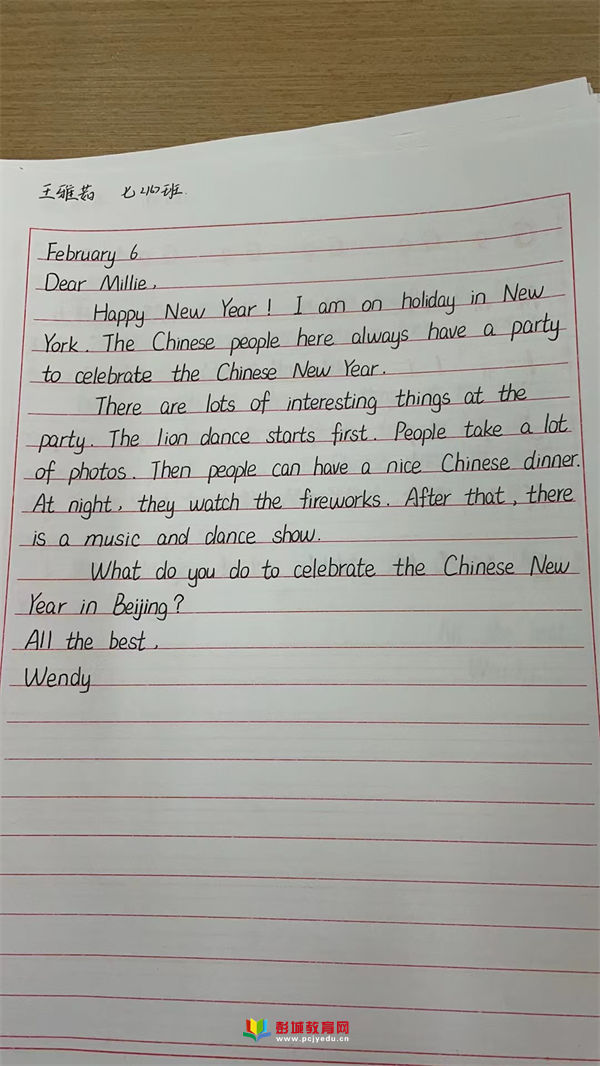 王雅茹 七(16)班
February 6
Dear Millie,
Happy New Year! I am on holiday in New
York. The Chinese people here always have a party
to celebrate the Chinese New Year.
There are lots of interesting things at the
party. The lion dance starts first. People take a lot
of photos. Then people can have a nice Chinese dinner.
At night, they watch the fireworks. After that, there
is a music and dance show.
What do you do to celebrate the Chinese New
Year in Beijing?
All the best,
Wendy
彭城教育网
www.pcjyedu.cn